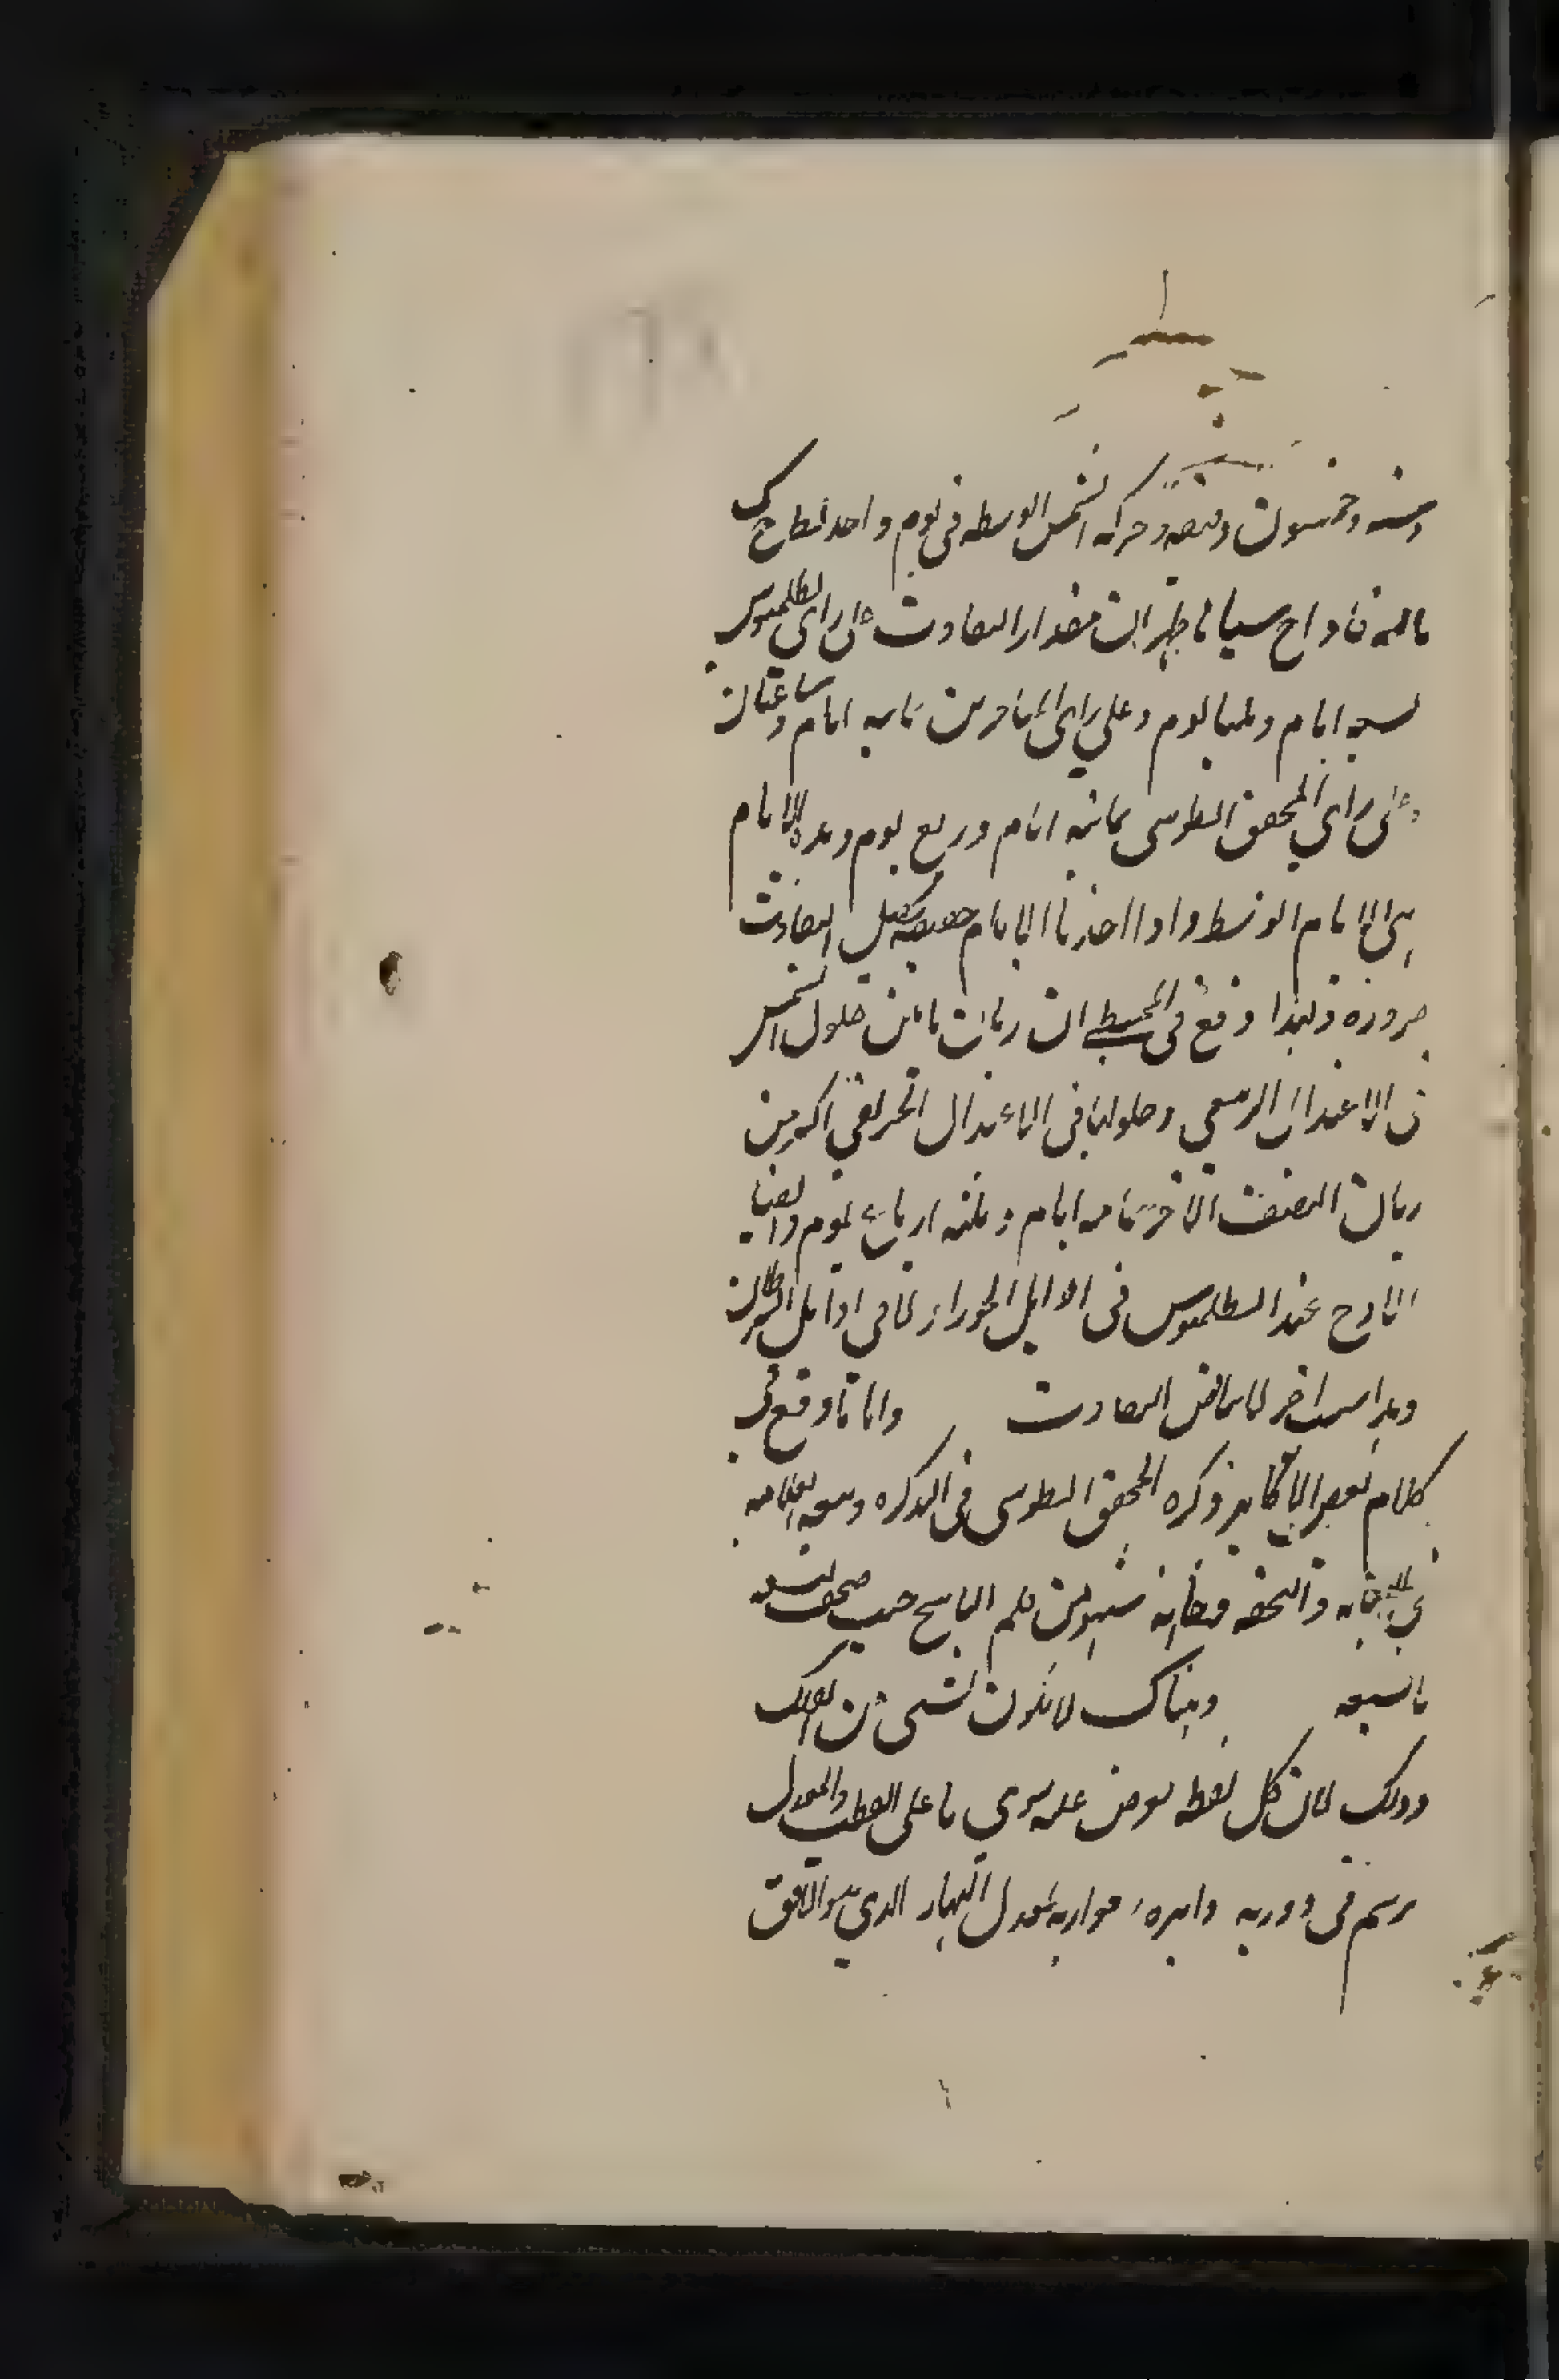 وستة وخمسون دقيقة وحركة الشمس الوسطه في يوم واحد نط ح ك
ثالثه فاذا سيا ما ظهر ان مقدار التفاوت على راى بطلميوس
تسعه ايام وثلثا يوم وعلى راى المتاخرين ثمانيه ايام وساعتان
وعلى راى المحقق الطوسى ثمانيه ايام وربع يوم وهذه الايام
هى الايام الوسط واذا اخذنا الايام حقيقيه يقل التفاوت
ضروره ولهذا وقع في المجسطي ان زمان ما بين حلول الشمس
في الاعتدال الربيعي وحلولها في الاعتدال الخريفي اكثر من
زمان النصف الاخر ثمانيه ايام وثلثه ارباع يوم وايضا
الاوج عند البطلميوس في اوايل الجوزاء لا في اوايل السرطان
وهذا سبب اخر لتناقض التفاوت واما ما وقع في
كلام بعض الاكابر ذكره المحقق الطوسى في التذكره وتبعه العلامه
في النهايه والتحفه فكانه سهو من قلم الناسخ حيث صحف تسعه
بالسبعه وهناك لا يكون لشيء من الفلك
وذلك لان كل نقطه يفرض عليه سوي ما على القطب والمعدل
يرسم في دوره دايره موازيه لمعدل النهار الذي هو الافق